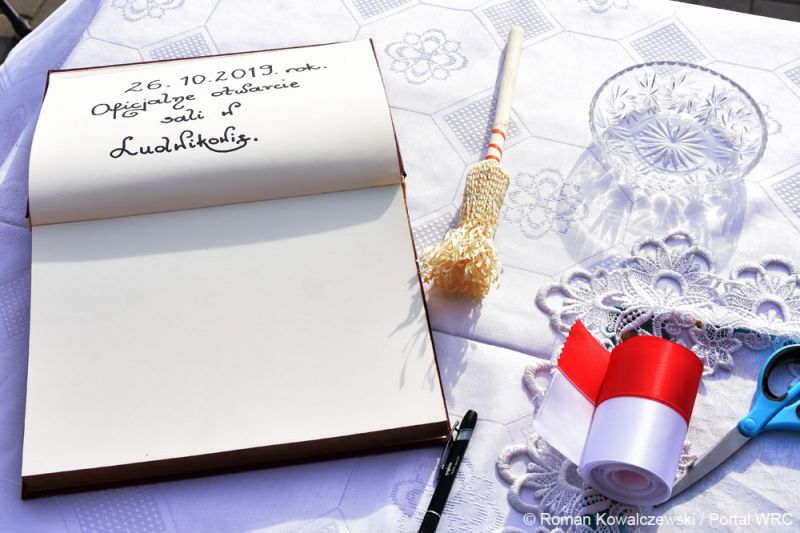 26. 10. 2019. rok.
Oficjalne otwarcie
sali w
Ludwikowie.
© Roman Kowalczewski / Portal WRC